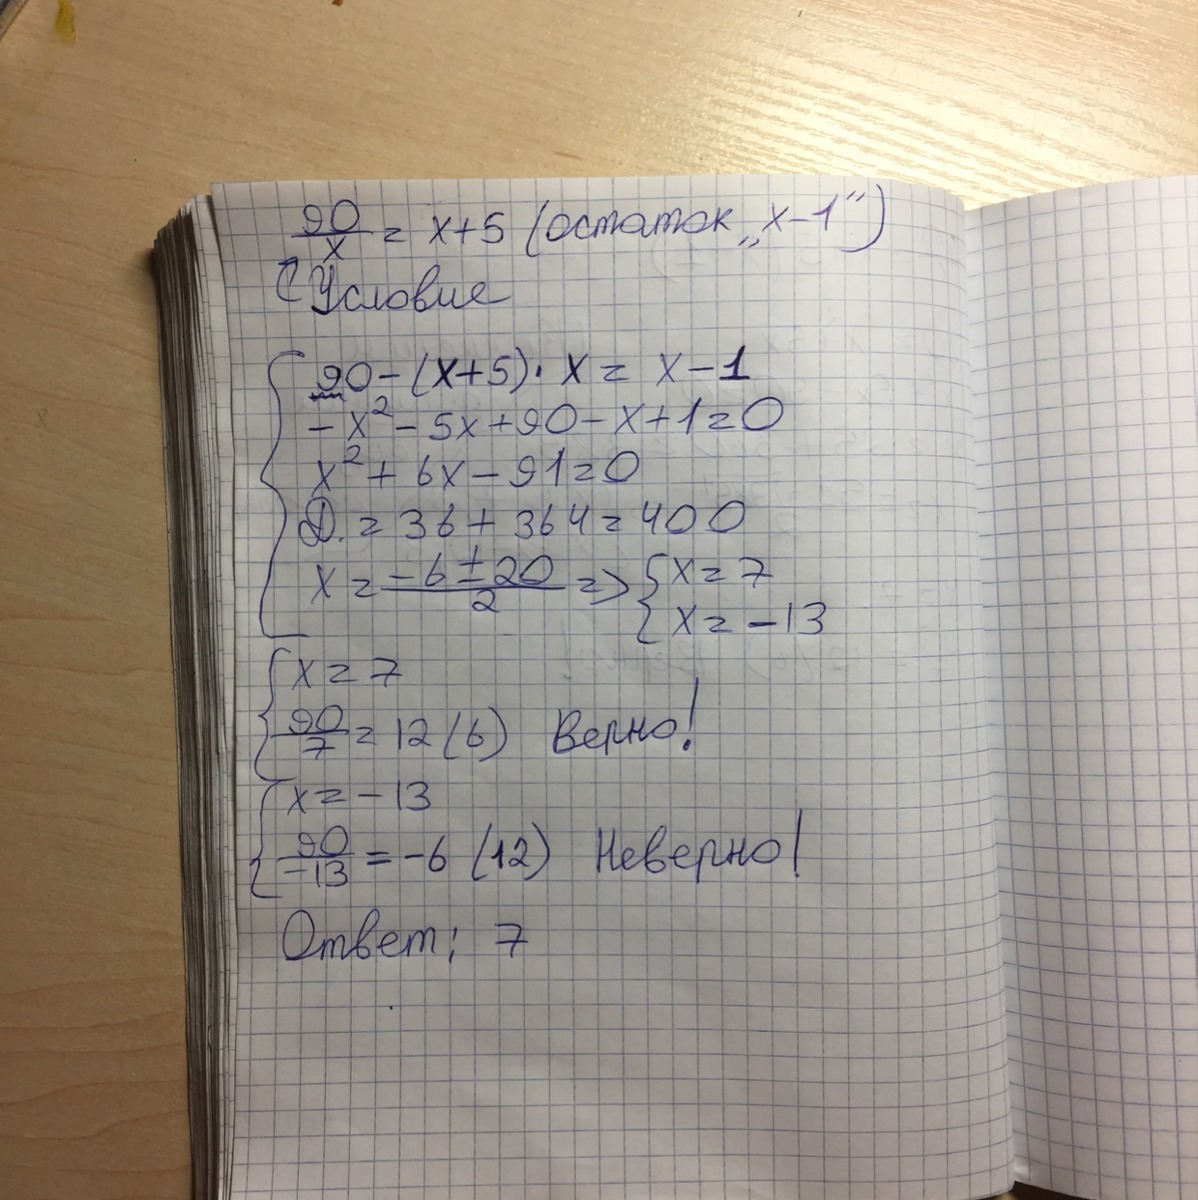 90/x = x+5 (остаток „x-1")
Условие
90-(x+5)·x = x-1
-x²-5x+90-x+1=0
x²+6x-91=0
D. = 36+364=400
x = (-6±20)/2 => {x=7
{x=-13
{x=7
90/7 = 12(6) Верно!
{x=-13
90/-13 = -6 (12) Неверно!
Ответ: 7